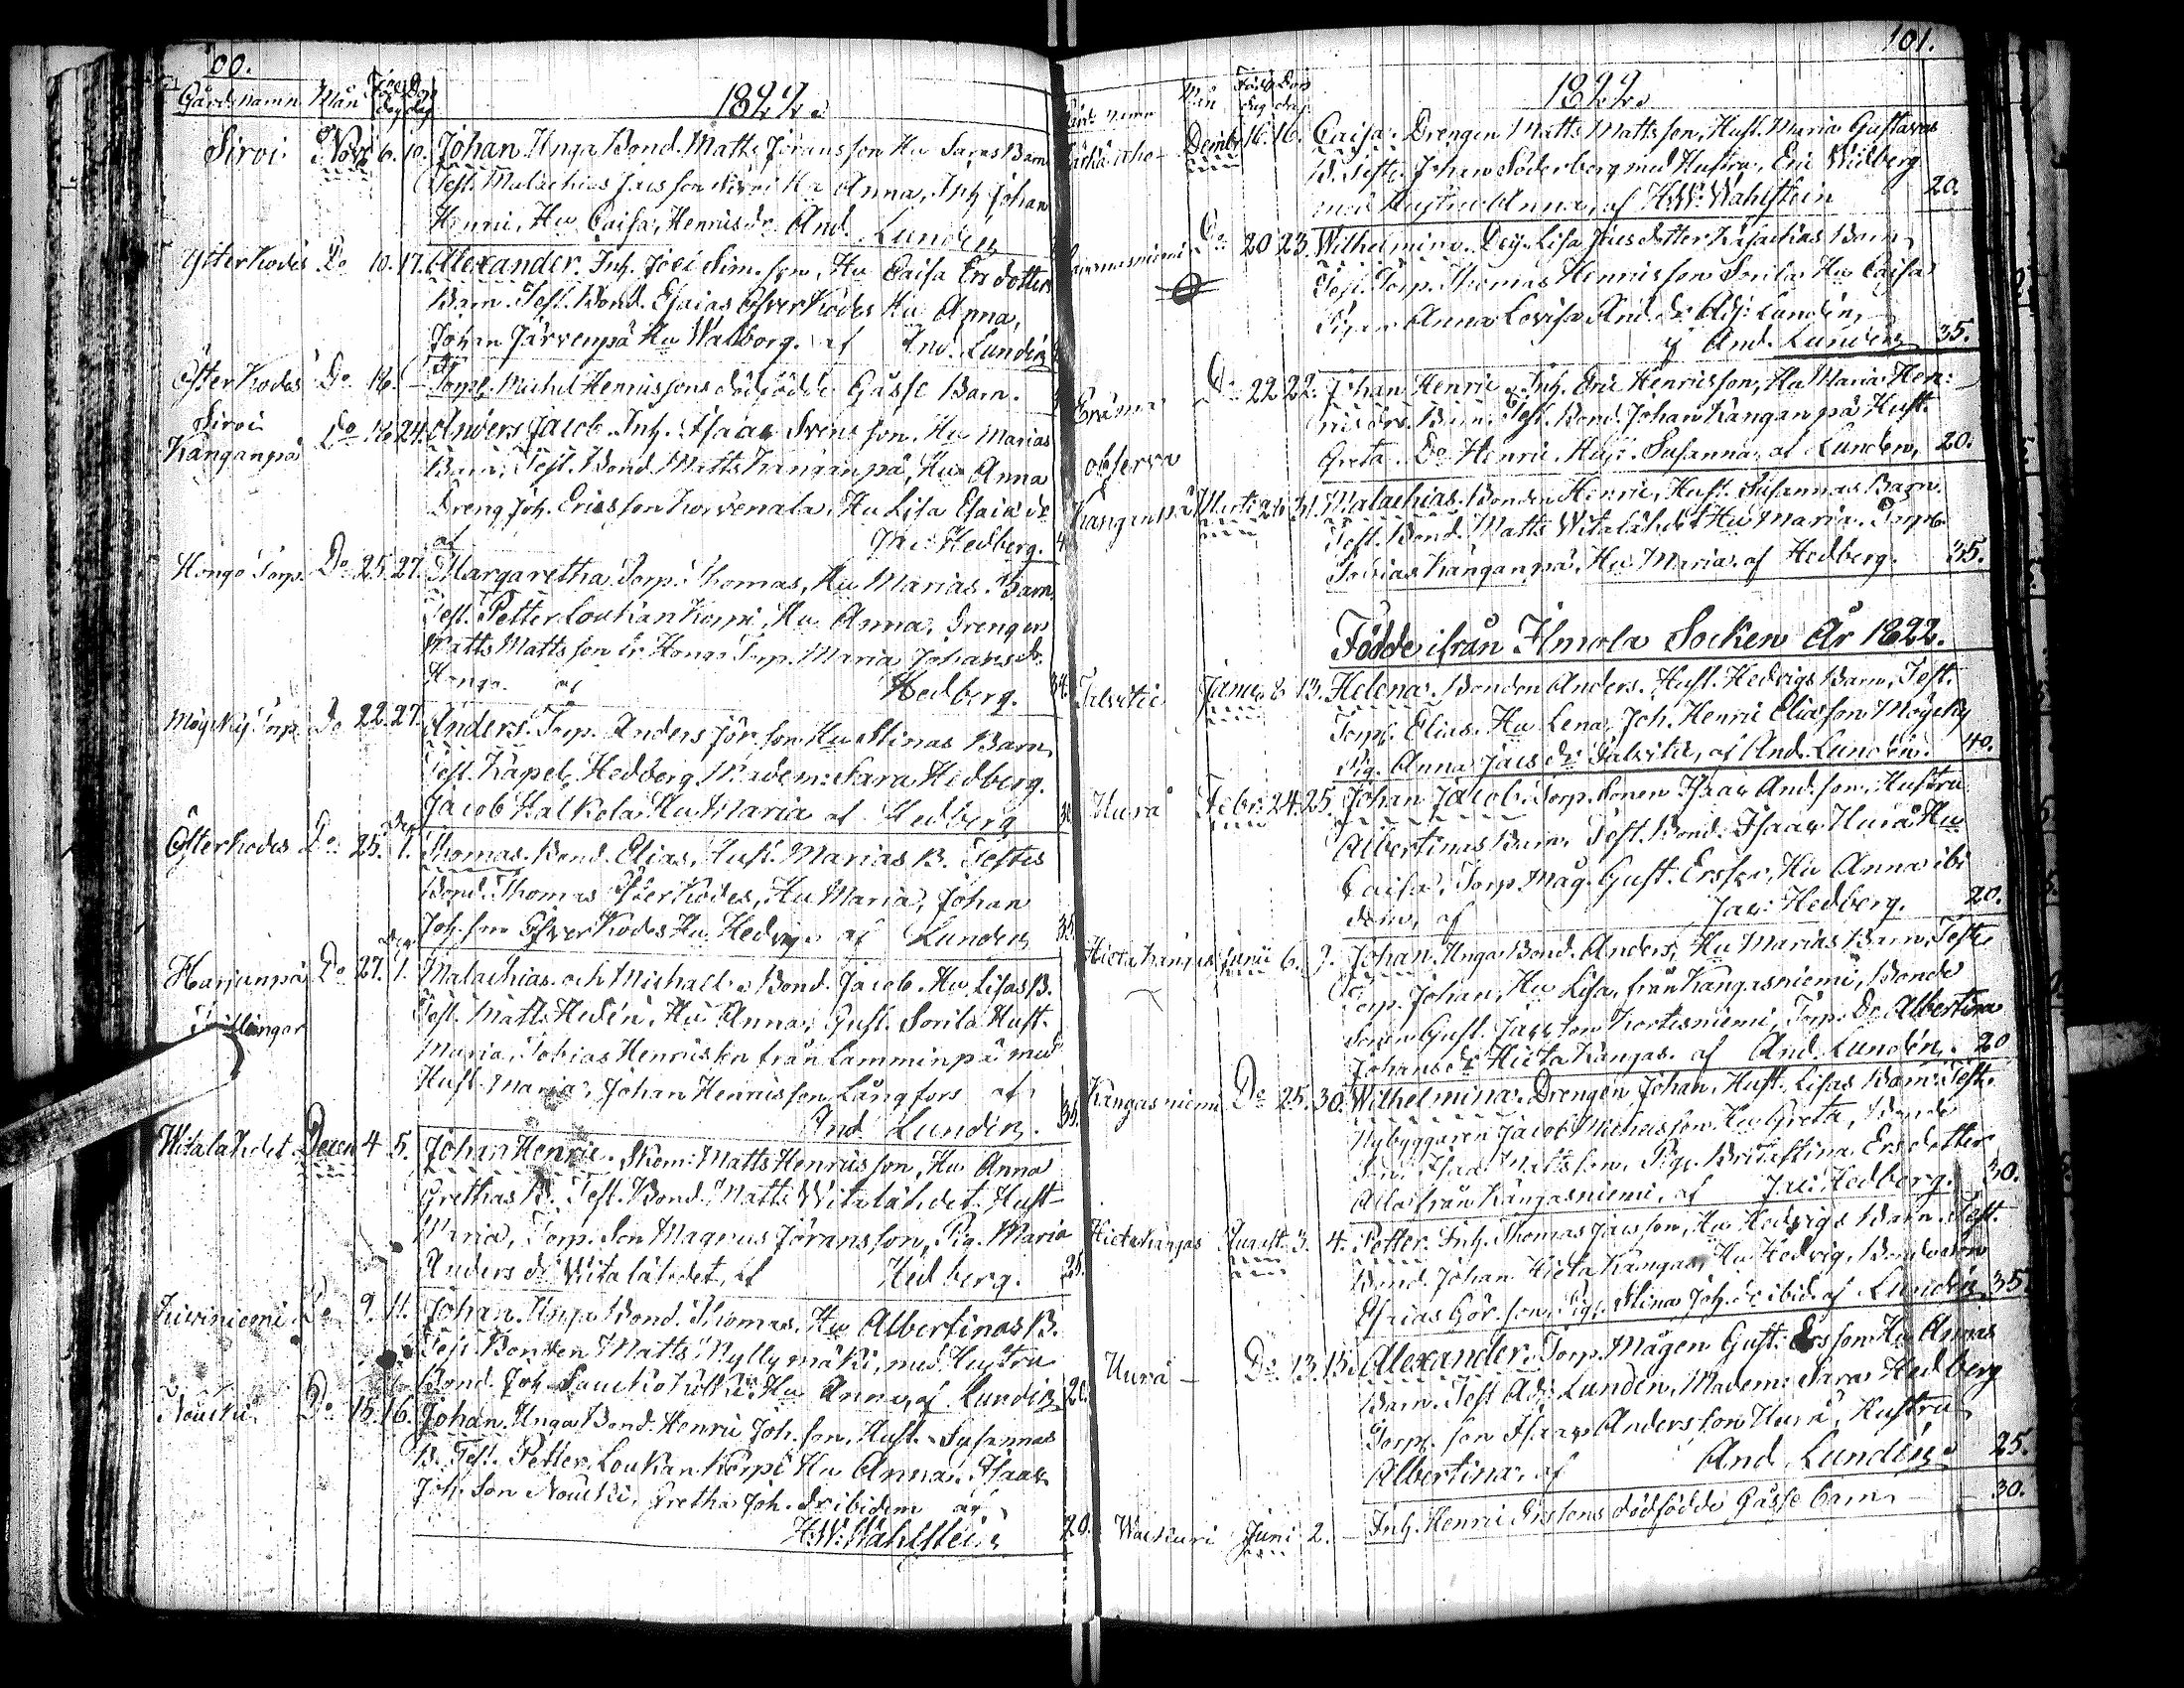 100.
Gårds namn Mån Föd. dag Dop dag
1822.
Sirvi Nov. 6. 10. Johan. Unga Bond. Matts Jöransson Hu Saras Barn
Test. Malachias Jacsson Sirvi Hu Anna, Inh. Johan
Henric, Hu Caisa, Henricsdr. And. Lundén
Ytterkodes Do 10. 17. Alexander. Inh. Joel Sim.son, Hu Caisa Ersdotters
Barn. Test. Bond. Esaias Öfverkodes Hu Anna,
Johan Järvenpä Hu Walborg. af And. Lundén
Österkodes Do 16. Torp. Michel Henricssons dödfödde Gåsse Barn.
Sirvi
Kanganpä Do 16. 24. Anders Jacob. Inh. Isaac Svensson. Hu Marias
Barn, Test. Bond. Matts Kanganpä, Hu Anna
Dreng Joh. Ericsson Korvenala, Hu Lisa Esaiædr
af Jac: Hedberg.
Hongo Torp. Do 25. 27. Margaretha. Torp. Thomas, Hu Marias Barn.
Test. Petter Loukankorpi, Hu Anna, Drengen
Matts Mattsson Hongo Torp. Maria Johansdr.
Hongo. af Hedberg. 34.
Möysky Torp. Do 22. 27. Anders. Torp. Anders Jör.son Hu Stinas Barn,
Test. Kapel. Hedberg Madem: Sara Hedberg.
Jacob Halkola Hu Maria af Hedberg
Österkodes Do 25. Dec. 1. Thomas. Bond. Elias, Hust. Marias B. Testes
Bond. Thomas Ytterkodes, Hu Maria, Johan
Joh.son Öfverkodes Hu Hedvig. af Lundén 35.
Harjunpä Do 27. Dec. 1. Malachias och Michael. Bond. Jacob. Hu Lisas B.
Tvillingar Test. Matts Hedén, Hu Anna, Gust. Sorila Hust.
Maria, Tobias Henricsson från Lamminpä med
Hust. Maria, Johan Henricsson Långfors af
And. Lundén. 35.
Witalähdet Decem 4 5. Johan Henric. Skom: Matts Henricsson, Hu Anna
Grethas B. Test. Bond. Matts Witalähdet Hust.
Maria, Torp. Son Magnus Jöransson, Pig. Maria
Andersdr Witalähdet, af Hedberg. 25.
Kiviniemi Do 9. 11. Johan. Unga Bond. Thomas. Hu Albertinas B.
Test. Bonden Matts Myllymäki, med Hustru
Bond. Joh. Hu Anna, af Lundén 20.
Nouski Do 15. 16. Johan. Unga Bond. Henric Joh.son, Hust. Susannas
B. Test. Petter Loukankorpi Hu Anna. Isaac
Joh.son Nouski, Gretha Joh.dr ibidem af
H.W: Wahlstein 20.
101.
Gårds namn Mån Föd. dag Dop dag
1822.
Decmbr 16. 16. Caisa. Drengen Matts Mattsson, Hust. Maria Gustavas
B. Teste. Johan Söderberg med Hustru, Eric Widberg
med Hustru Anna, af H.W: Wahlstein 20.
Do 20 23. Wilhelmina. Pig. Lisa Jacsdotter Barn
Test. Torp. Thomas Henricsson Sorila Hu Caisa
Pigan Anna Lovisa And.dr Adj: Lundén,
af And. Lundén 35.
Do 22 22. Johan Henric. Inh. Eric Henricsson, Hu Maria Hen:
ricsdrs Barn. Test. Bond. Johan Kanganpä Hust.
observa Greta. Do Henric Hust. Susanna, af Lundén, 20.
Kanganpä Martii 26. 31. Malachias. Bonden Henric, Hust. Susannas Barn.
Test. Bond. Matts Witalähdet Hu Maria. Torp.
Tobias Kanganpä, Hu Maria. af Hedberg. 35.
Födde ifrån Ilmola Socken År 1822.
Talvitie Janu. 8 13. Helena. Bonden Anders. Hust. Hedvigs Barn, Test.
Torp. Elias. Hu Lena, Joh. Henric Eliasson Möysky
Pig. Anna Jacsdr Talvitie, af And. Lundén. 40.
Hurå Febr. 24. 25. Johan Jacob. Torp. Sonen Isaac And.son, Hustru
Albertinas Barn. Test. Bond. Isaac Hurå Hu
Caisa, Torp. Måg. Gust. Ersson, Hu Anna ibi
dem, af Jac: Hedberg. 20.
Hietakangas Junii 6. 9. Johan. Unga Bond. Anders, Hu Marias Barn, Teste
Torp. Johan, Hu Lisa, från Kangasniemi, Bonde
Sonen Gust. Jacsson Kortesniemi, Torp. Dr Albertina
Johansdr Hietakangas. af And. Lundén. 20
Kangasniemi Do 25. 30. Wilhelmina. Drengen Johan, Hust. Lisas Barn. Test.
Nybyggaren Jacob Michelsson Hu Greta, Bonde
Son Isaac Mattsson, Pig. Brita Stina Ersdotter
Alla från Kangasniemi, af Jac: Hedberg. 30.
Hietakangas August. 3. 4. Petter. Inh. Thomas Jacsson, Hu Hedvigs Barn. Test.
Bond. Johan Hietakangas, Hu Hedvig. Bondeson
Esaias Gör.son, Pig. Stina Joh.dr ibid. af Lundén 35.
Hurå Do 13. 15. Alexander. Torp. Mågen Gust. Ersson Hu Annas
Barn. Test. Adj: Lundén, Madem: Sara Hedberg
Torp. son Isaac Andersson Hurå, Hustru
Albertina, af And. Lundén. 25.
Waskuri Juni 2. Inh. Henric dödfödde Gåsse barn 30.